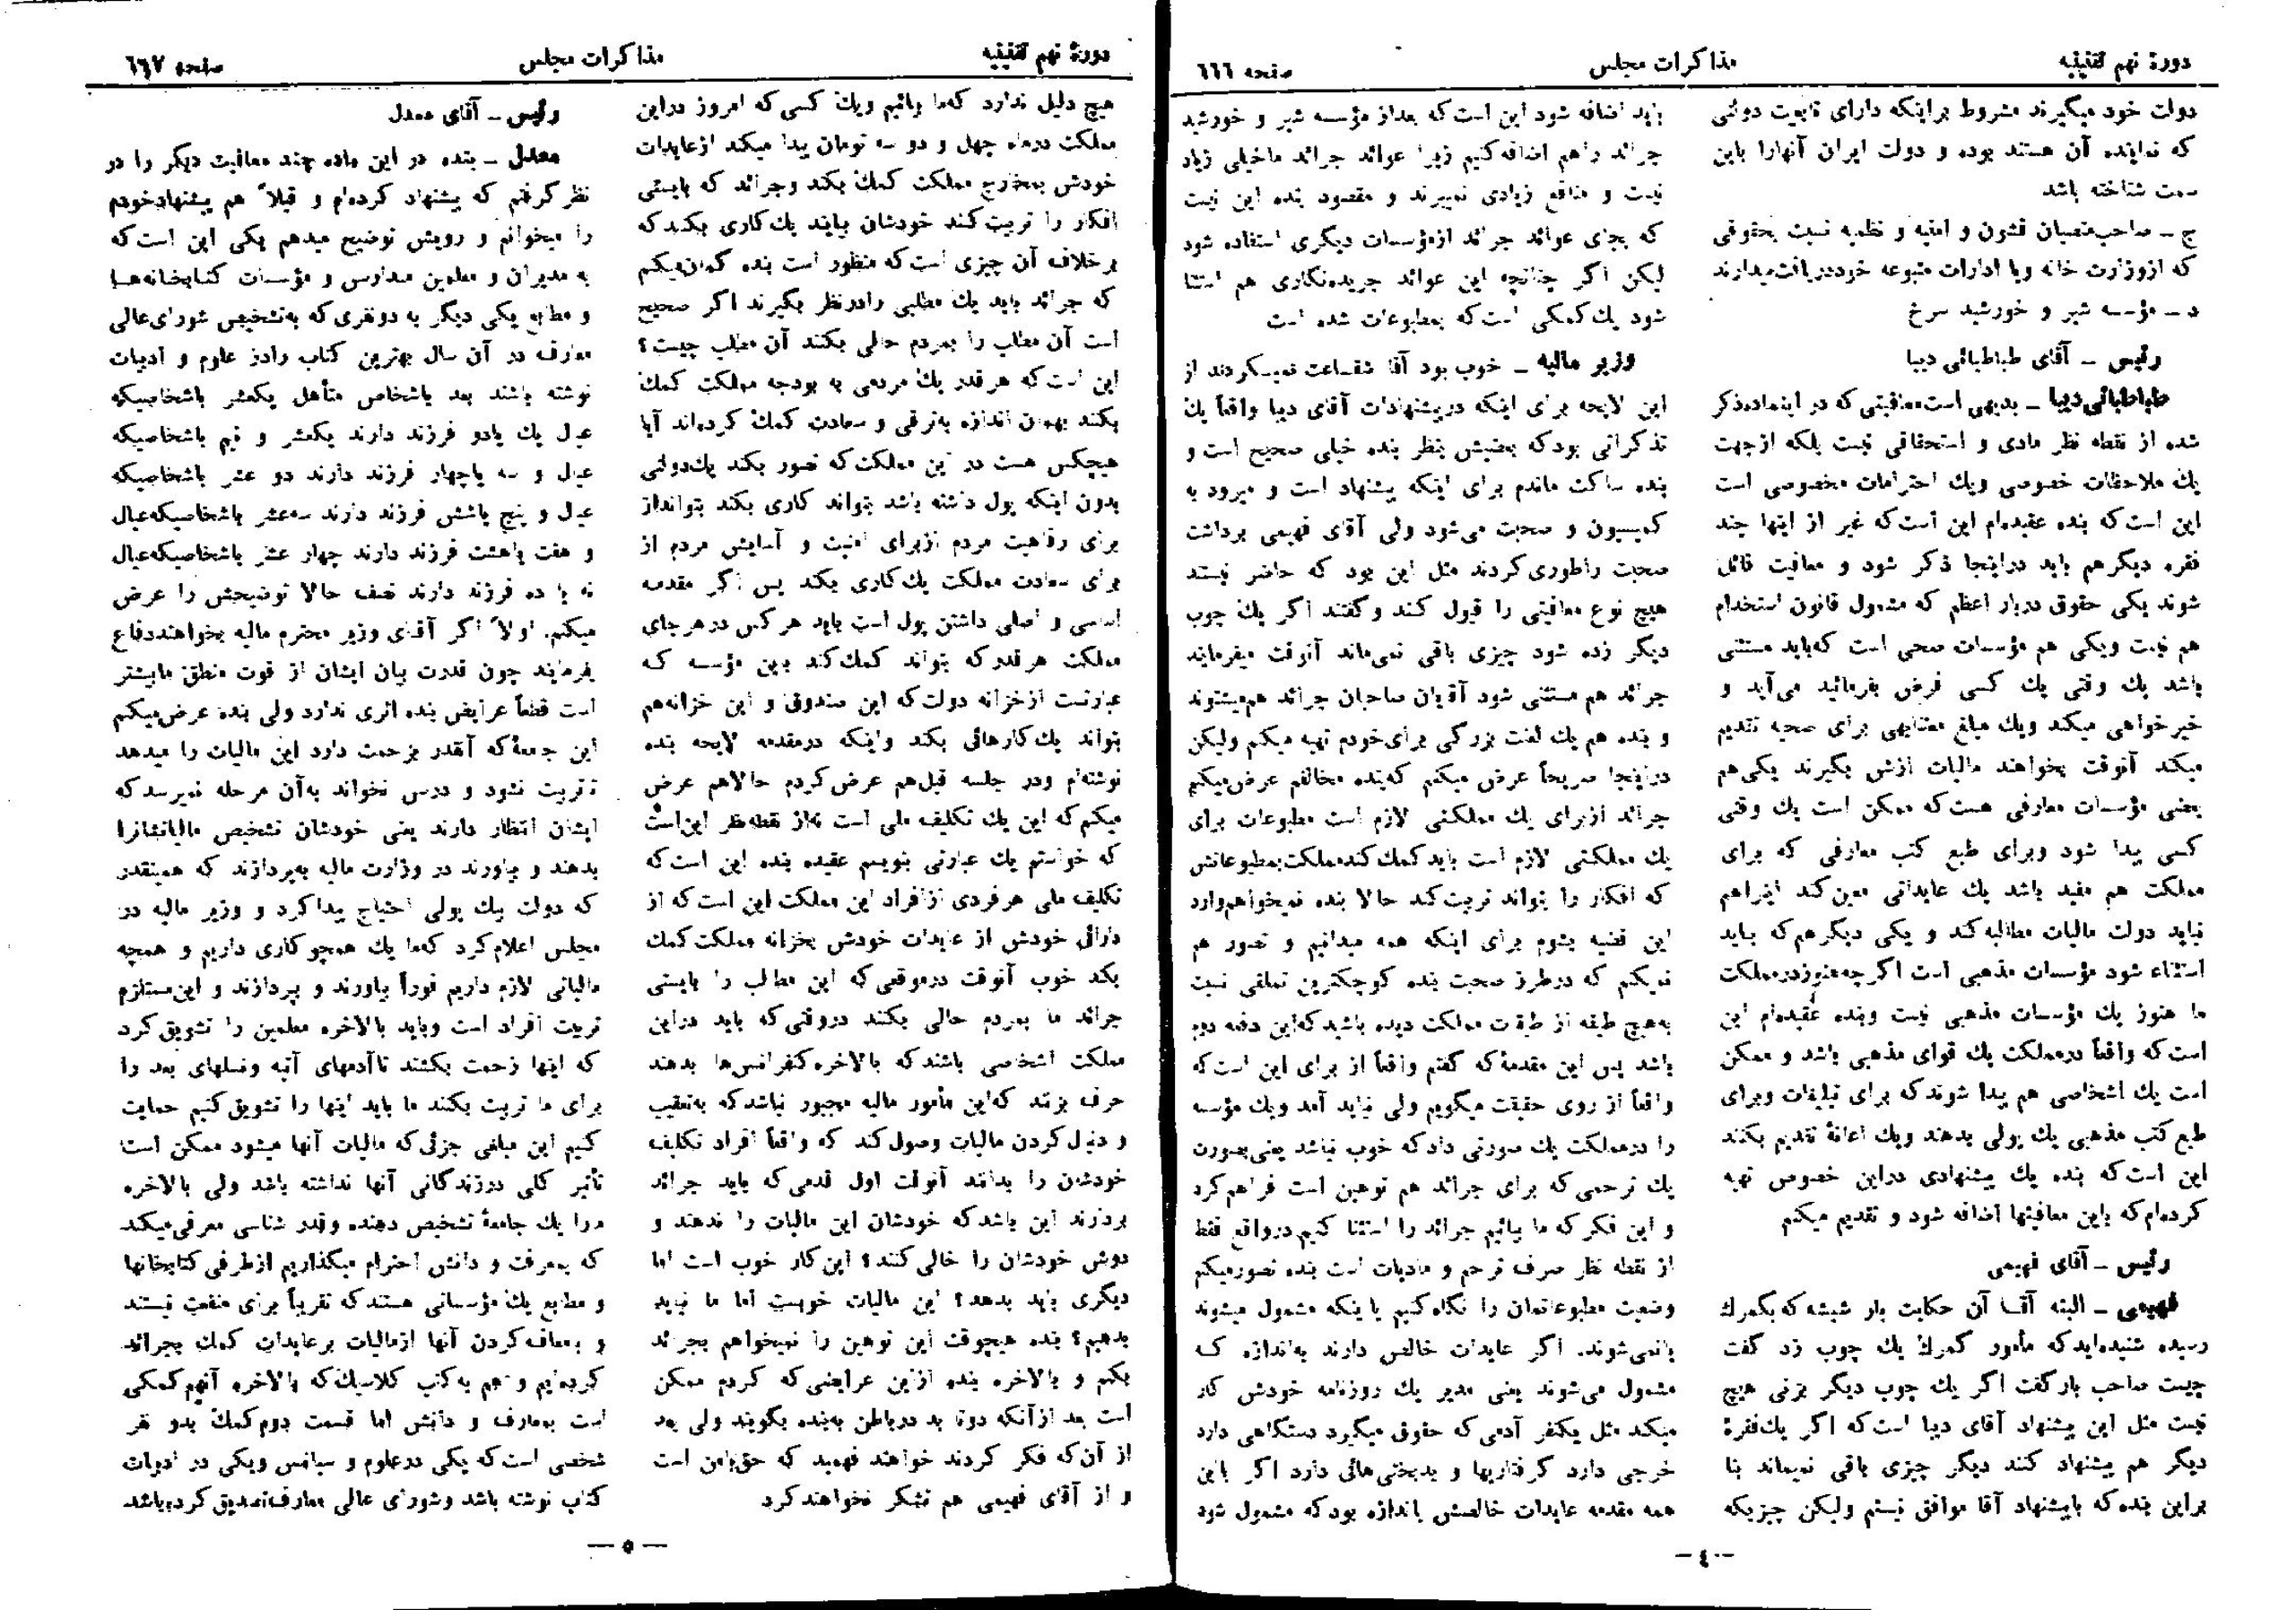 دورهٔ نهم تقنینیه
مذاکرات مجلس
صفحه ٦٦٦
دولت خود میگیرند مشروط براینکه دارای تابعیت دولتی
که نماینده آن هستند بوده و دولت ایران آنهارا باین
سمت شناخته باشد
ج ــ صاحبمنصبان قشون و امنیه و نظمیه نسبت بحقوقی
که ازوزارت خانه ویا ادارات متبوعه خوددریافت‌میدارند
د ــ مؤسسه شیر و خورشید سرخ
رئیس ــ آقای طباطبائی دیبا
طباطبائی‌دیبا ــ بدیهی است‌معافیتی که در اینماده‌ذکر
شده از نقطه نظر مادی و استحقاقی نیست بلکه ازجهت
یك ملاحظات خصوصی ویك احترامات مخصوصی است
این است‌که بنده عقیده‌ام این است‌که غیر از اینها چند
فقره دیگرهم باید دراینجا ذکر شود و معافیت قائل
شوند یکی حقوق دربار اعظم که مشمول قانون استخدام
هم نیست ویکی هم مؤسسات صحی است که‌باید مستثنی
باشد یك وقتی یك کسی فرض بفرمائید می‌آید و
خیرخواهی میکند ویك مبلغ معتنابهی برای صحیه تقدیم
میکند آنوقت بخواهند مالیات ازش بگیرند یکی‌هم
بعضی مؤسسات معارفی هست‌که ممکن است یك وقتی
کسی پیدا شود وبرای طبع کتب معارفی که برای
مملکت هم مفید باشد یك عایداتی معین‌کند اینراهم
نباید دولت مالیات مطالبه‌کند و یکی دیگرهم‌که باید
استثناء شود مؤسسات مذهبی است اگرچه‌هنوزدرمملکت
ما هنوز یك مؤسسات مذهبی نیست وبنده عقیده‌ام این
است‌که واقعاً درمملکت یك قوای مذهبی باشد و ممکن
است یك اشخاصی هم پیدا شوندکه برای تبلیغات وبرای
طبع کتب مذهبی یك پولی بدهند ویك اعانهٔ تقدیم بکنند
این است‌که بنده یك پیشنهادی دراین خصوص تهیه
کرده‌ام‌که باین معافیتها اضافه شود و تقدیم میکنم
رئیس ــ آقای فهیمی
فهیمی ــ البته آقا آن حکایت بار شیشه که‌بگمرك
رسیده شنیده‌ایدکه مأمور گمرك یك چوب زد گفت
چیست صاحب بارگفت اگر یك چوب دیگر بزنی هیچ
نیست مثل این پیشنهاد آقای دیبا است‌که اگر یك‌فقرهٔ
دیگر هم پیشنهاد کنند دیگر چیزی باقی نمیماند بنا
براین بنده‌که باپیشنهاد آقا موافق نیستم ولیکن چیزیکه
باید اضافه شود این است‌که بعداز مؤسسه شیر و خورشید
جرائد راهم اضافه‌کنیم زیرا عوائد جرائد ماخیلی زیاد
نیست و منافع زیادی نمیبرند و مقصود بنده این نیست
که بجای عوائد جرائد ازمؤسسات دیگری استفاده شود
لیکن اگر چنانچه این عوائد جریده‌نگاری هم استثنا
شود یك‌کمکی است‌که بمطبوعات شده است
وزیر مالیه ــ خوب بود آقا شفاعت نمیکردند از
این لایحه برای اینکه درپیشنهادات آقای دیبا واقعاً یك
تذکراتی بودکه بعضیش بنظر بنده خیلی صحیح است و
بنده ساکت ماندم برای اینکه پیشنهاد است و میرود به
کمیسیون و صحبت می‌شود ولی آقای فهیمی برداشت
صحبت راطوری‌کردند مثل این بود که حاضر نیستند
هیچ نوع معافیتی را قبول کنند وگفتند اگر یك چوب
دیگر زده شود چیزی باقی نمی‌ماند آنوقت میفرمایند
جرائد هم مستثنی شود آقایان صاحبان جرائد هم‌میشنوند
و بنده هم یك لغت بزرگی برای‌خودم تهیه میکنم ولیکن
دراینجا صریحاً عرض میکنم که‌بنده مخالفم عرض‌میکنم
جرائد ازبرای یك مملکتی لازم است مطبوعات برای
یك مملکتی لازم است بایدکمك‌کندمملکت‌بمطبوعاتش
که افکار را بتواند تربیت‌کند حالا بنده نمیخواهم‌وارد
این قضیه بشوم برای اینکه همه میدانیم و تصور هم
نمیکنم که درطرز صحبت بنده کوچکترین تملقی نسبت
به‌هیچ طبقه از طبقات مملکت دیده باشیدکه‌این دفعه دوم
باشد پس این مقدمهٔ‌که گفتم واقعاً از برای این است‌که
واقعاً از روی حقیقت میگویم ولی نباید آمد ویك مؤسسه
را درمملکت یك صورتی دادکه خوب نباشد یعنی‌بصورت
یك ترحمی‌که برای جرائد هم توهین است فراهم‌کرد
و این فکر که ما بیائیم جرائد را استثنا کنیم درواقع فقط
از نقطه نظر صرف ترحم و مادیات است بنده تصورمیکنم
وضعیت مطبوعاتمان را نگاه‌کنیم یااینکه مشمول میشوند
یانمی‌شوند. اگر عایدات خالص دارند به‌اندازه که
مشمول می‌شوند یعنی مدیر یك روزنامه خودش کار
میکند مثل یکنفر آدمی‌که حقوق میگیرد دستگاهی دارد
خرجی دارد گرفتاریها و بدبختی‌هائی دارد اگر بااین
همه مقدمه عایدات خالصش باندازه بودکه مشمول شود
ــ ٤ ــ
دورهٔ نهم تقنینیه
مذاکرات مجلس
صفحه ٦٦٧
هیچ دلیل ندارد که‌ما بیائیم ویك کسی‌که امروز دراین
مملکت درماه چهل و دو سه تومان پیدا میکند ازعایدات
خودش بمخارج مملکت کمك بکند وجرائد که بایستی
افکار را تربیت‌کنند خودشان بیایند یك‌کاری بکنندکه
برخلاف آن چیزی است‌که منظور است بنده گمان‌میکنم
که جرائد باید یك مطلبی رادرنظر بگیرند اگر صحیح
است آن مطلب را بمردم حالی بکنند آن مطلب چیست؟
این است‌که هرقدر یك مردمی به بودجه مملکت کمك
بکنند بهمان اندازه به‌ترقی و سعادت کمك کرده‌اند آیا
هیچکس هست در این مملکت‌که تصور بکند یك‌دولتی
بدون اینکه پول داشته باشد بتواند کاری بکند بتوانداز
برای رفاهیت مردم ازبرای امنیت و آسایش مردم از
برای سعادت مملکت یك‌کاری بکند پس اگر مقدمه
اساسی و اصلی داشتن پول است باید هرکس درهرجای
مملکت هرقدرکه بتواند کمك‌کند باین مؤسسه که
عبارتست ازخزانه دولت‌که این صندوق و این خزانه‌هم
بتواند یك‌کارهائی بکند واینکه درمقدمه لایحه بنده
نوشته‌ام ودر جلسه قبل‌هم عرض‌کردم حالاهم عرض
میکنم‌که این یك تکلیف ملی است نه‌از نقطه‌نظر این‌است
که خواستم یك عبارتی بنویسم عقیده بنده این است‌که
تکلیف ملی هرفردی ازافراد این مملکت این است‌که از
دارائی خودش از عایدات خودش بخزانه مملکت‌کمك
بکند خوب آنوقت درموقعی‌که این مطالب را بایستی
جرائد ما بمردم حالی بکنند دروقتی‌که باید دراین
مملکت اشخاصی باشندکه بالاخره‌کنفرانس‌ها بدهند
حرف بزنند که‌این مأمور مالیه مجبور نباشدکه به‌تعقیب
و دنبال‌کردن مالیات وصول‌کند که واقعاً افراد تکلیف
خودشان را بدانند آنوقت اول قدمی‌که باید جرائد
بردارند این باشدکه خودشان این مالیات را ندهند و
دوش خودشان را خالی‌کنند؟ این‌کار خوب است اما
دیگری باید بدهد؟ این مالیات خوبست اما ما نباید
بدهیم؟ بنده هیچوقت این توهین را نمیخواهم بجرائد
بکنم و بالاخره بنده ازاین عرایضی‌که کردم ممکن
است بعد ازآنکه دوتا بد درباطن به‌بنده بگویند ولی بعد
از آن‌که فکر کردند خواهند فهمید که حق‌بامن است
و از آقای فهیمی هم تشکر نخواهندکرد
رئیس ــ آقای معدل
معدل ــ بنده در این ماده چند معافیت دیگر را در
نظر گرفتم که پیشنهاد کرده‌ام و قبلاً هم پیشنهادخودم
را میخوانم و رویش توضیح میدهم یکی این است‌که
به مدیران و معلمین مدارس و مؤسسات کتابخانه‌ها
و مطابع یکی دیگر به دونفری‌که به‌تشخیص شورای‌عالی
معارف در آن سال بهترین کتاب رادر علوم و ادبیات
نوشته باشند بعد باشخاص متأهل یکعشر باشخاصیکه
عیال یك یادو فرزند دارند یکعشر و نیم باشخاصیکه
عیال و سه یاچهار فرزند دارند دو عشر باشخاصیکه
عیال و پنج یاشش فرزند دارند سه‌عشر باشخاصیکه‌عیال
و هفت یاهشت فرزند دارند چهار عشر باشخاصیکه‌عیال
نه یا ده فرزند دارند نصف حالا توضیحش را عرض
میکنم. اولاً اگر آقای وزیر محترم مالیه بخواهنددفاع
بفرمایند چون قدرت بیان ایشان از قوت منطق مابیشتر
است قطعاً عرایض بنده اثری ندارد ولی بنده عرض‌میکنم
این جمعهٔ‌که آنقدر بزحمت دارد این مالیات را میدهد
تاتربیت نشود و درس نخواند به‌آن مرحله نمیرسدکه
ایشان انتظار دارند یعنی خودشان تشخیص مالیاتشانرا
بدهند و بیاورند در وزارت مالیه به‌پردازند که همینقدر
که دولت بیك پولی احتیاج پیداکرد و وزیر مالیه در
مجلس اعلام‌کرد که‌ما یك همچو کاری داریم و همچه
مالیاتی لازم داریم فوراً بیاورند و بپردازند و این‌مستلزم
تربیت افراد است وباید بالاخره معلمین را تشویق‌کرد
که اینها زحمت بکشند تاآدمهای آتیه ونسلهای بعد را
برای ما تربیت بکنند ما باید اینها را تشویق‌کنیم حمایت
کنیم این مبلغی جزئی‌که مالیات آنها میشود ممکن است
تأثیر کلی درزندگانی آنها نداشته باشد ولی بالاخره
مارا یك جامعهٔ تشخیص دهنده وقدر شناسی معرفی‌میکند
که بمعرفت و دانش احترام میگذاریم ازطرفی کتابخانها
و مطابع یك مؤسساتی هستندکه تقریباً برای منفعت نیستند
و بمعاف‌کردن آنها ازمالیات برعایدات کمك بجرائد
کرده‌ایم و هم به‌کتب کلاسیك‌که بالاخره آنهم‌کمکی
است بمعارف و دانش اما قسمت دوم‌کمك بدو نفر
شخصی است‌که یکی درعلوم و سیانس ویکی در ادبیات
کتاب نوشته باشد وشورای عالی معارف‌تصدیق کرده‌باشد
ــ ٥ ــ